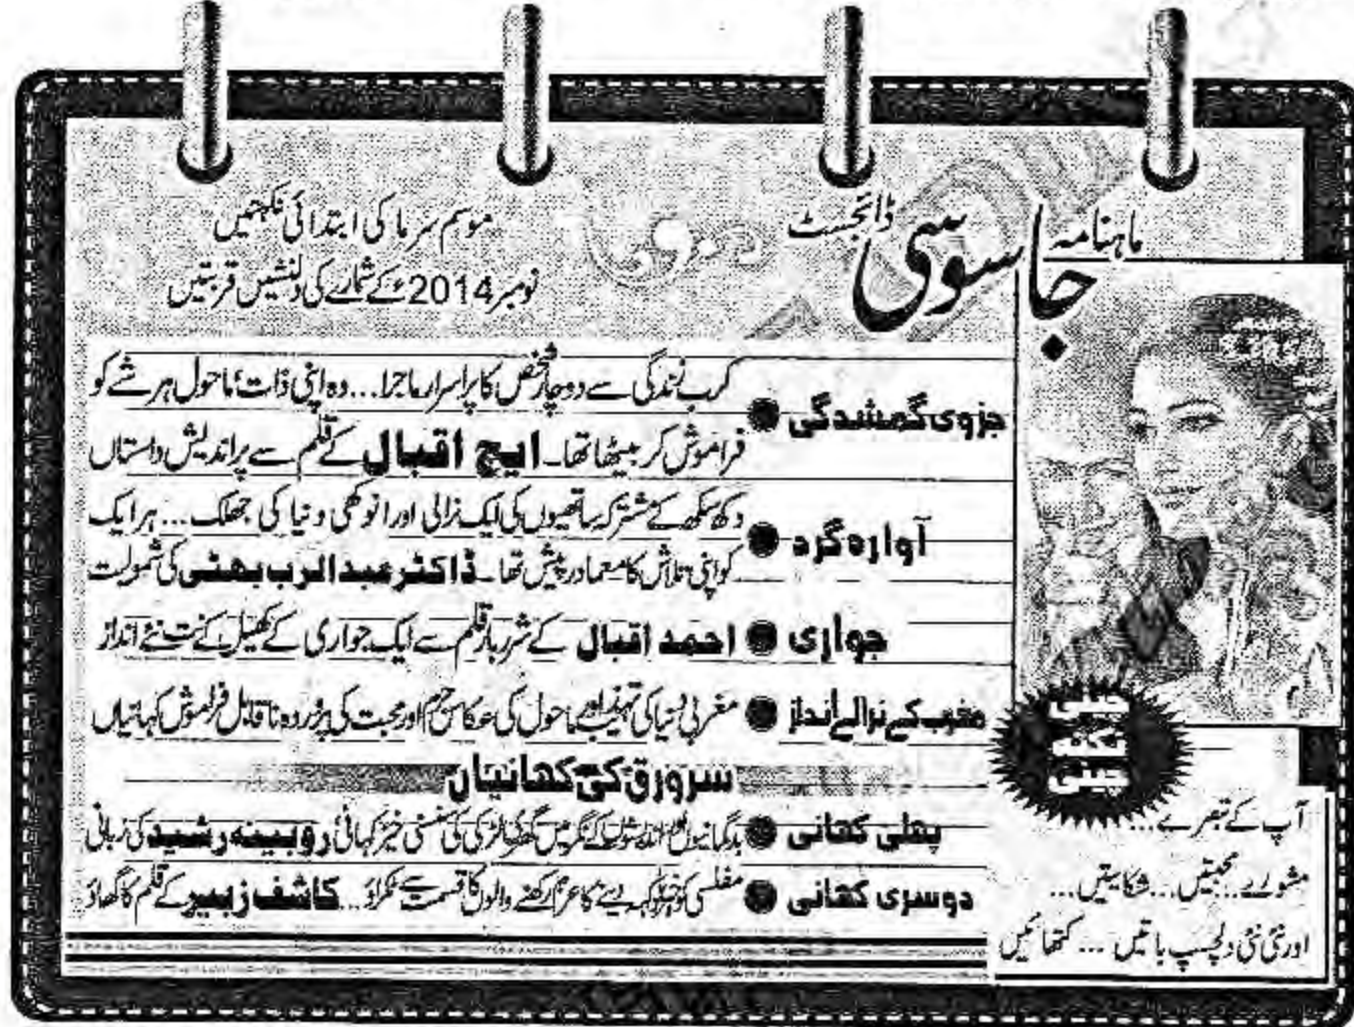 ماہنامہ
جاسوسی ڈائجسٹ
موسم سرما کی ابتدائی نکہتیں
نومبر 2014ء کے شمارے کی دلنشیں قربتیں
جزوی گمشدگی ● کرب زندگی سے دوچار شخص کا پراسرار ماجرا... وہ اپنی ذات، ماحول ہر شے کو
فراموش کر بیٹھا تھا۔ ایچ اقبال کے قلم سے پراندیش داستاں
آوارہ گرد ● دکھ سکھ کے مشترکہ ساتھیوں کی ایک نرالی اور انوکھی دنیا کی جھلک... ہر ایک
کو اپنی تلاش کا معما درپیش تھا۔ ڈاکٹر عبدالرب بھٹی کی شمولیت
جواری ● احمد اقبال کے شرربار قلم سے ایک جواری کے کھیل کے نت نئے انداز
مغرب کے نرالے انداز ● مغربی دنیا کی تہذیب اور ماحول کی عکاس جرم اور محبت کی ناقابل فراموش کہانیاں
سرورق کی کہانیاں
پہلی کہانی ● بدگمانیوں اور اندیشوں کے نگر میں گھری لڑکی کی سنسنی خیز کہانی روبینہ رشید کی زبانی
دوسری کہانی ● مفلسی کو خیرباد کہہ دینے کا عزم رکھنے والوں کا قسمت سے ٹکراؤ... کاشف زبیر کے قلم کا گھاؤ
چینی
نکتہ
چینی
آپ کے تبصرے...
مشورے... محبتیں... شکایتیں...
اور نئی نئی دلچسپ باتیں... کتھائیں